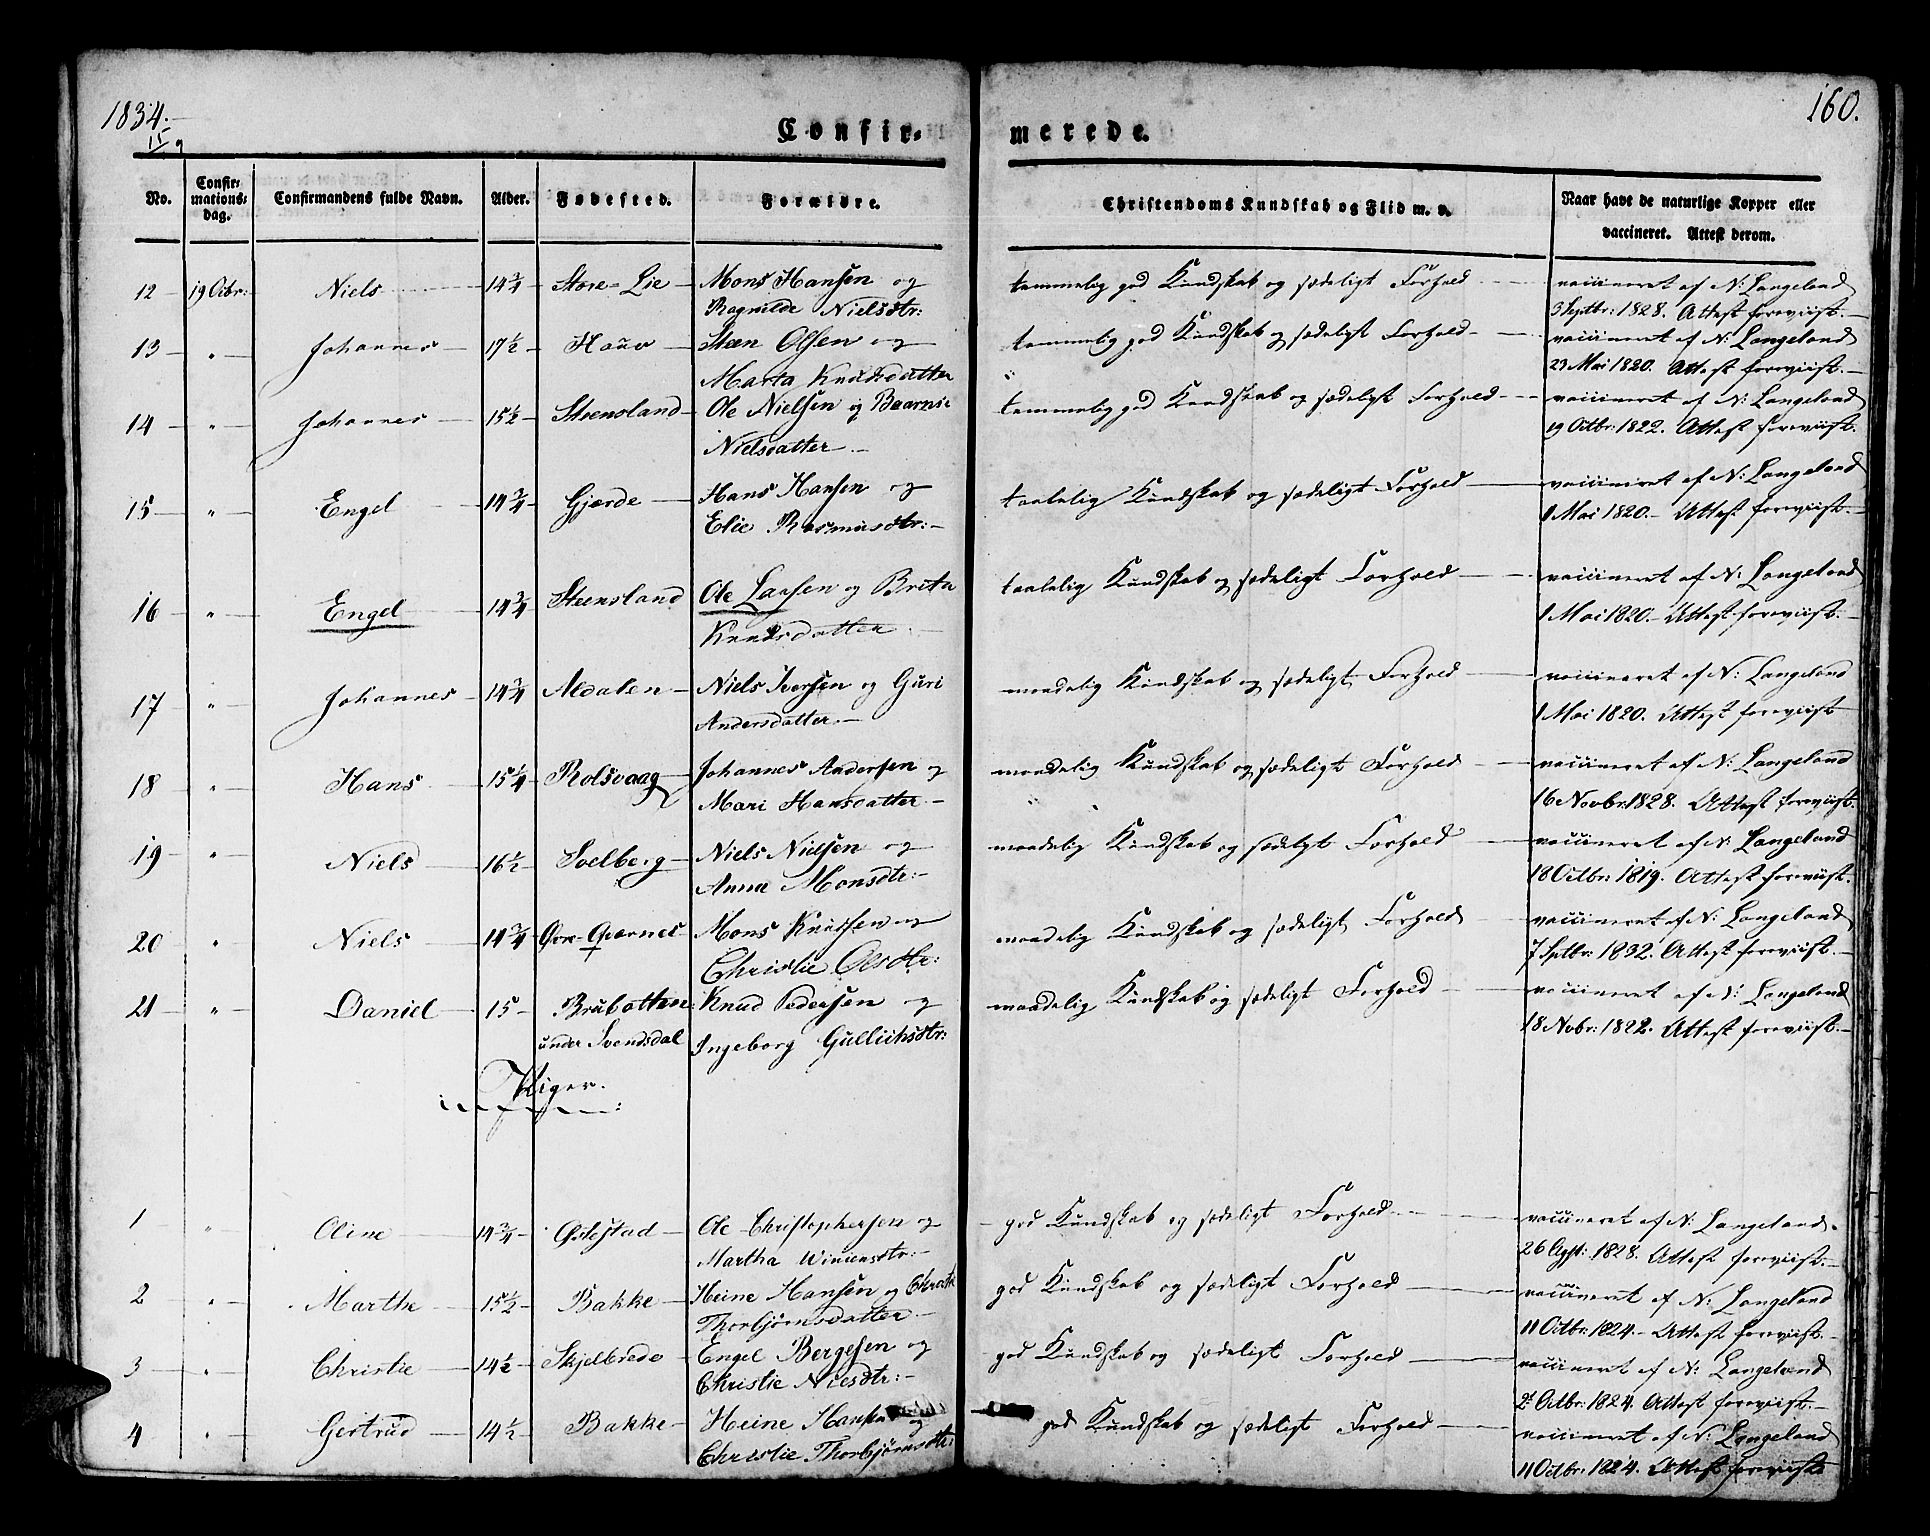 1834.
15/9
160.
Confir-
merede.
No.
Confir-
mations-
dag.
Confirmandens fulde Navn.
Alder.
Fødested.
Forældre.
Christendoms Kundskab og Flid m. v.
Naar havt de naturlige Kopper eller
vaccineret. Attest derom.
12 19 Octbr: Niels 14 3/4 Store-Lie Mons Hansen og temmelig god Kundskab og sædeligt Forhold vaccineret af N: Langeland
Ragnilde Nielsdtr: 3 Septbr: 1828. Attest foreviist.
13 " Johannes 17 1/2 Steen Olsen og temmelig god Kundskab og sædeligt Forhold vaccineret af N: Langeland
Marta Knudsdatter 23 Mai 1820. Attest foreviist.
14 " Johannes 15 1/2 Steensland Ole Nielsen og temmelig god Kundskab og sædeligt Forhold vaccineret af N: Langeland
Nielsdatter 19 Octbr: 1822. Attest foreviist.
15 " Engel 14 3/4 Gjærde Hans Hansen og taalelig Kundskab og sædeligt Forhold vaccineret af N: Langeland
Elie Rasmusdtr: 1 Mai 1820. Attest foreviist.
16 " Engel 14 3/4 Steensland Ole Larsen og Brita taalelig Kundskab og sædeligt Forhold vaccineret af N: Langeland
Knudsdatter 1 Mai 1820. Attest foreviist.
17 " Johannes 14 3/4 Aldalen Niels Iversen og Guri maadelig Kundskab og sædeligt Forhold vaccineret af N: Langeland
Andersdatter 1 Mai 1820. Attest foreviist
18 " Hans 15 1/4 Rolsvaag Johannes Andersen og maadelig Kundskab og sædeligt Forhold vaccineret af N: Langeland
Mari Hansdatter 16 Novbr: 1828. Attest foreviist.
19 " Niels 16 1/2 Soelberg Niels Nielsen og maadelig Kundskab og sædeligt Forhold vaccineret af N: Langeland
Anna Monsdtr: 18 Octbr: 1819. Attest foreviist.
20 " Niels 14 3/4 Mons Knudsen og maadelig Kundskab og sædeligt Forhold vaccineret af N: Langeland
Christie Olsdtr: 7 Sptbr: 1832. Attest foreviist.
21 " Daniel 15 Brubotten Knud Pedersen og maadelig Kundskab og sædeligt Forhold vaccineret af N: Langeland
under Svendsdal Ingeborg Gullichsdtr: 18 Novbr: 1822. Attest foreviist.
Piger.
1 " Oline 14 3/4 Østestad Ole Christophersen og god Kundskab og sædeligt Forhold vaccineret af N: Langeland
Martha 26 Agst: 1828. Attest foreviist.
2 " Marthe 15 1/2 Bakke Heine Hansen og Christie god Kundskab og sædeligt Forhold vaccineret af N: Langeland
Thorbjørnsdatter 11 Octbr: 1824. Attest foreviist.
3 " Christie 14 1/2 Skjelbrede Engel Bergesen og god Kundskab og sædeligt Forhold vaccineret af N: Langeland
Christie Nielsdtr: Octbr: 1824. Attest foreviist.
4 " Gertrud 14 1/2 Bakke Heine Hansen og god Kundskab og sædeligt Forhold vaccineret af N: Langeland
Christie Thorbjørnsdtr: 11 Octbr: 1824. Attest foreviist